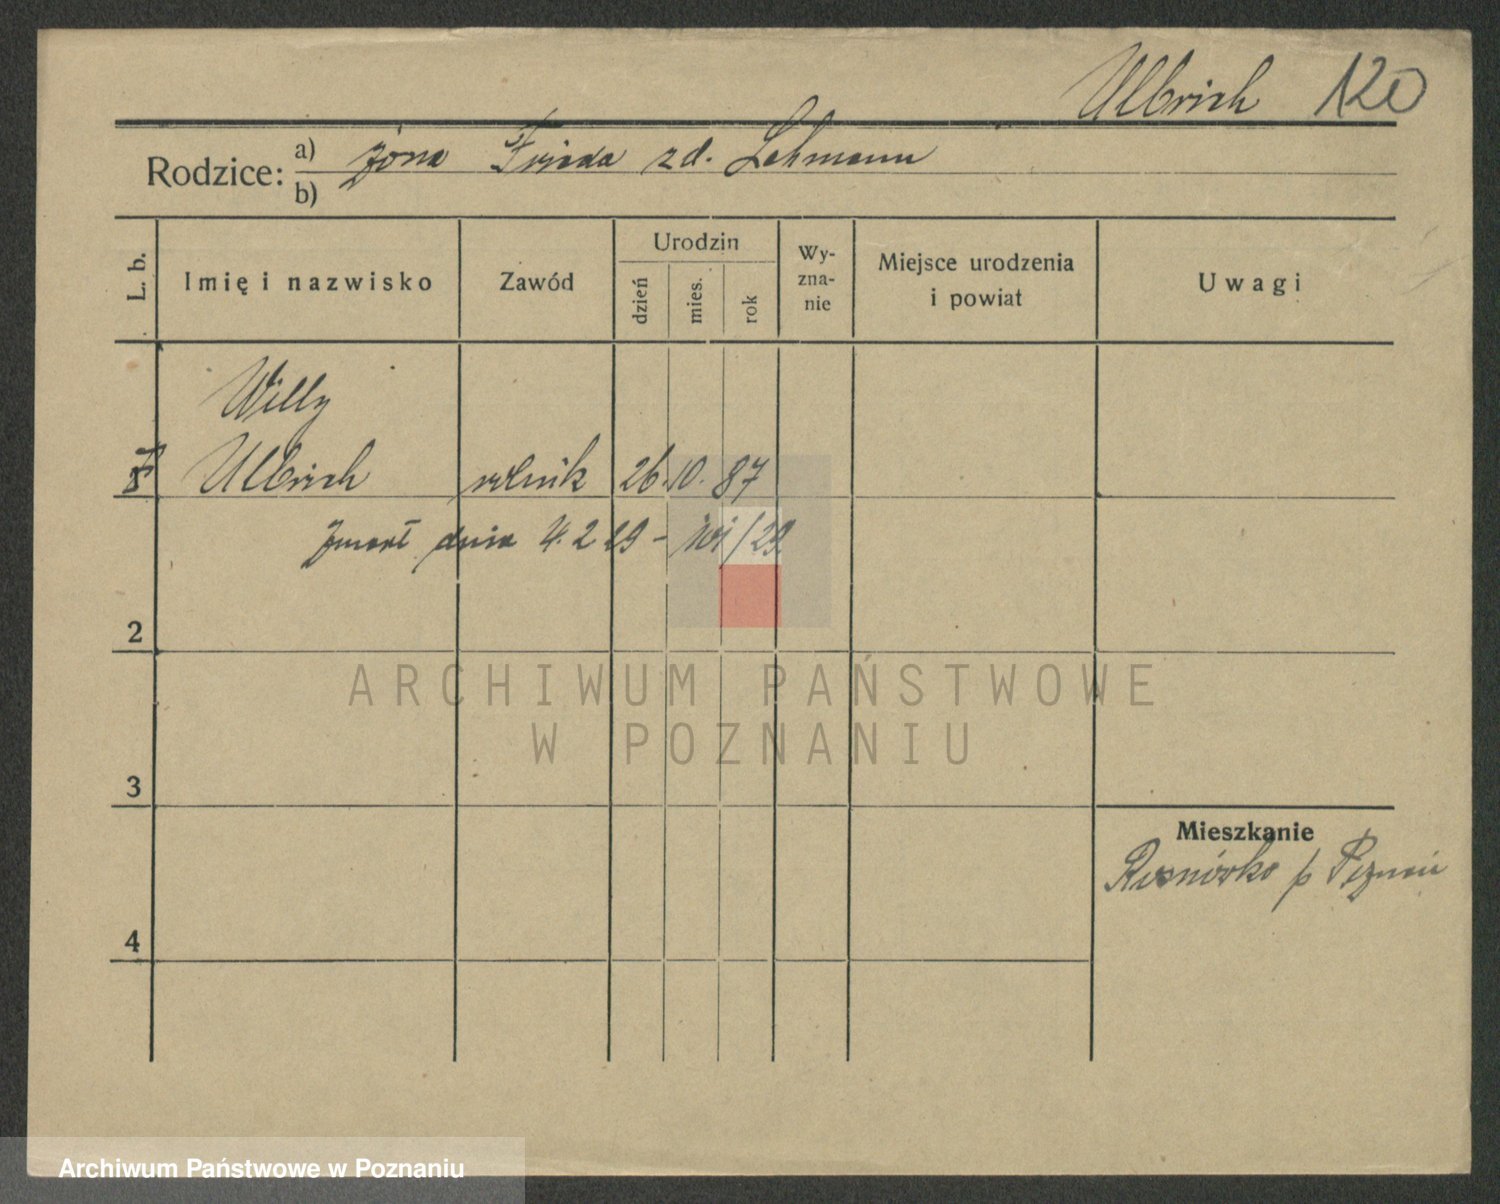 Ulbrich 120
Rodzice: a) żona Frieda zd. Lehmann
b)
L. b.
Imię i nazwisko
Zawód
Urodzin
dzień
mies.
rok
Wy-
zna-
nie
Miejsce urodzenia
i powiat
Uwagi
Willy
Ulbrich rolnik 26. 10. 87
zmarł dnia 4. 2 29 -
2
3
4
Mieszkanie
Rosnówko p Poznań
ARCHIWUM PAŃSTWOWE
W POZNANIU
Archiwum Państwowe w Poznaniu